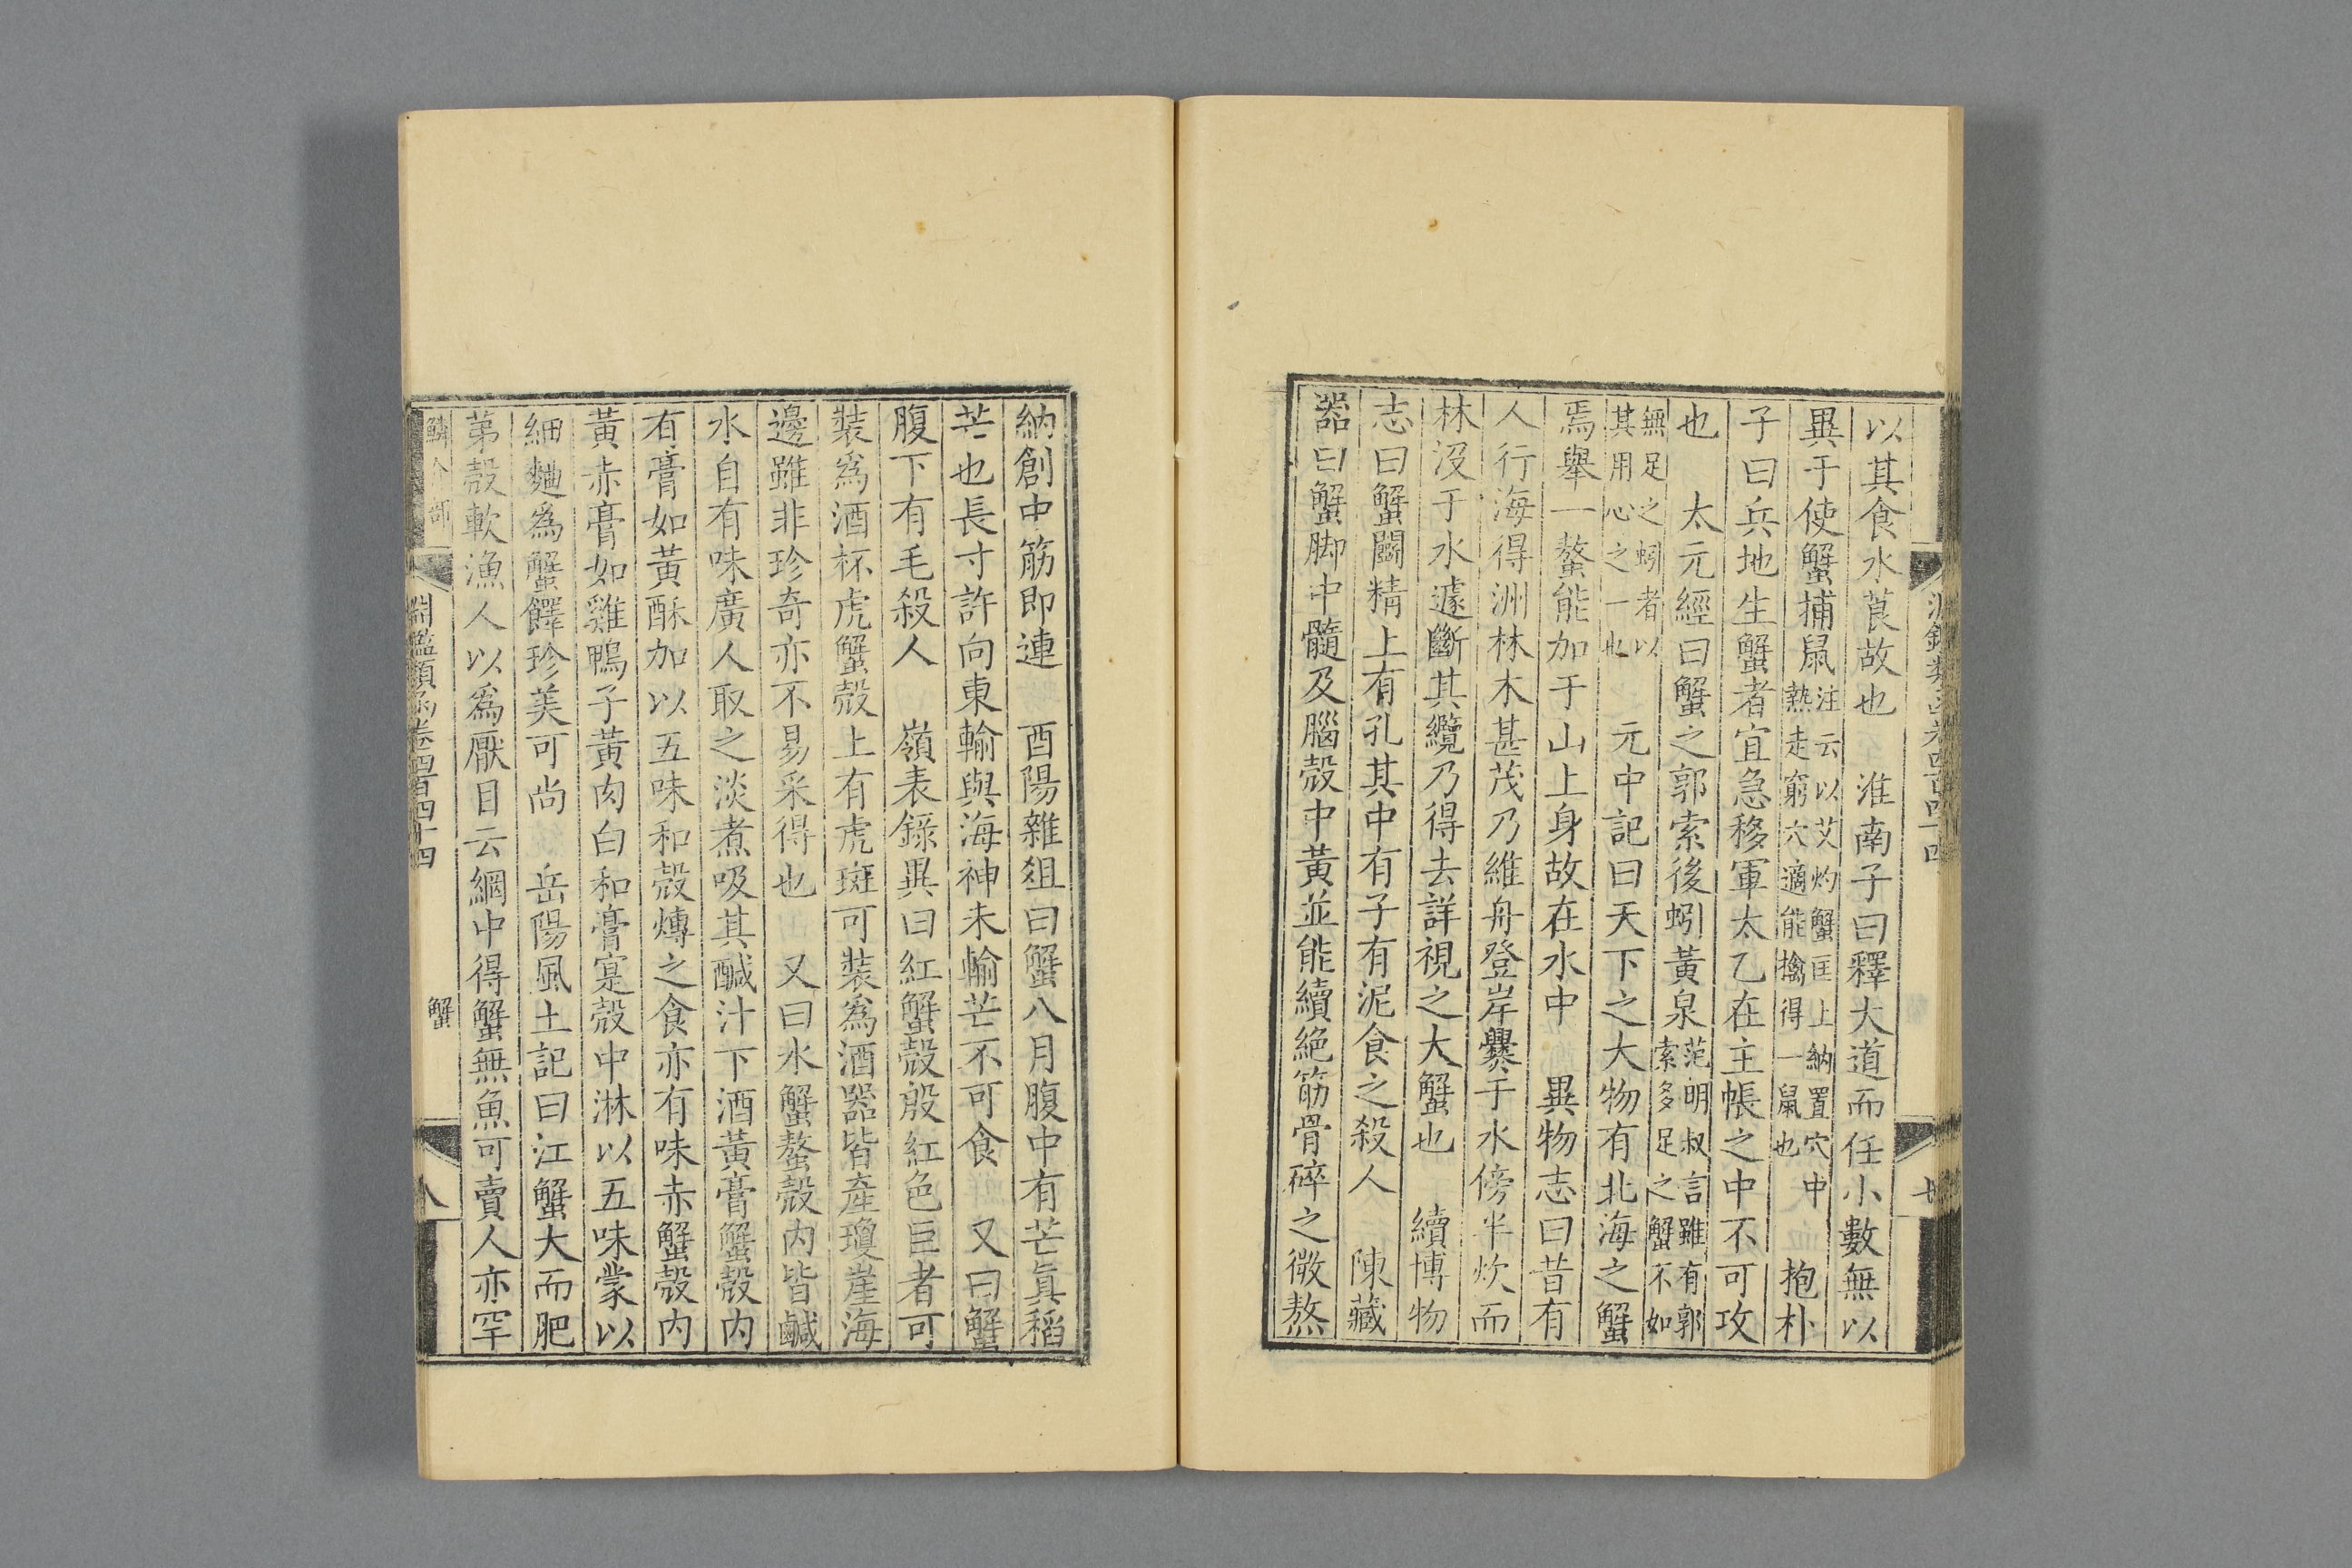 以其食水莨故也　淮南子曰釋大道而任小數無以
異于使蟹捕鼠注云以艾灼蟹匡上納置穴中熱走窮穴適能擒得一鼠也　抱朴
子曰兵地生蟹者宜急移軍太乙在主帳之中不可攻
也　太元經曰蟹之郭索後蚓黃泉范明叔言雖有郭索多足之蟹不如
無足之蚓者以其用心之一也　元中記曰天下之大物有北海之蟹
焉舉一螯能加于山上身故在水中　異物志曰昔有
人行海得洲林木甚茂乃維舟登岸爨于水傍半炊而
林沒于水遽斷其纜乃得去詳視之大蟹也　續博物
志曰蟹闘精上有孔其中有子有泥食之殺人　陳藏
器曰蟹脚中髓及腦殼中黃並能續絕筋骨碎之微熬
納創中筋即連　酉陽雜俎曰蟹八月腹中有芒眞稻
芒也長寸許向東輸與海神未輸芒不可食　又曰蟹
腹下有毛殺人　嶺表錄異曰紅蟹殼殷紅色巨者可
裝爲酒杯虎蟹殼上有虎斑可裝爲酒器皆產瓊崖海
邊雖非珍奇亦不易采得也　又曰水蟹螯殼內皆鹹
水自有味廣人取之淡煮吸其鹹汁下酒黃膏蟹殼內
有膏如黃酥加以五味和殼煿之食亦有味赤蟹殼內
黃赤膏如雞鴨子黃肉白和膏寔殼中淋以五味蒙以
細麵爲蟹饆珍美可尚　岳陽風土記曰江蟹大而肥
第殼軟漁人以爲厭目云網中得蟹無魚可賣人亦罕
鱗介部
淵鑑類函卷四百四十四
蟹
八